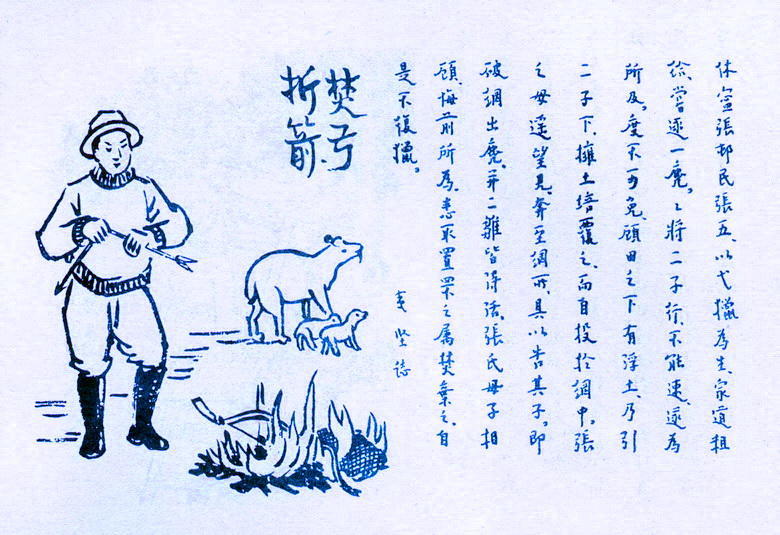 休寧張邨民張五、以弋獵為生、家道粗
給。嘗逐一麂。々將二子行不能速、遂為
所及。度不可免、顧田之下有浮土、乃引
二子下、擁土培覆之、而自投於網中。張
之母遙望見、奔至網所、具以告其子。即
破網出麂、并二雛皆得活。張氏母子相
顧、悔前所為、悉取罝罘之屬焚棄之、自
是不復獵。
夷堅誌
焚弓
折箭